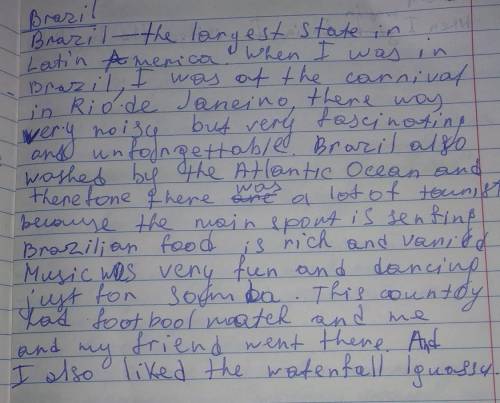 Brazil
Brazil—the largest state in
Latin America. When I was in
Brazil, I was at the carnival
in Rio de Janeino, there was
very noisy but very fascinating
and unforgettable. Brazil also
washed by the Atlantic Ocean and
therefore there was a lot of tourist
because the main sport is serfing
Brazilian food is rich and varied
Music was very fun and dancing
just for samba. This country
had footbool match and me
and my friend went there. And
I also liked the waterfall Iguassu.